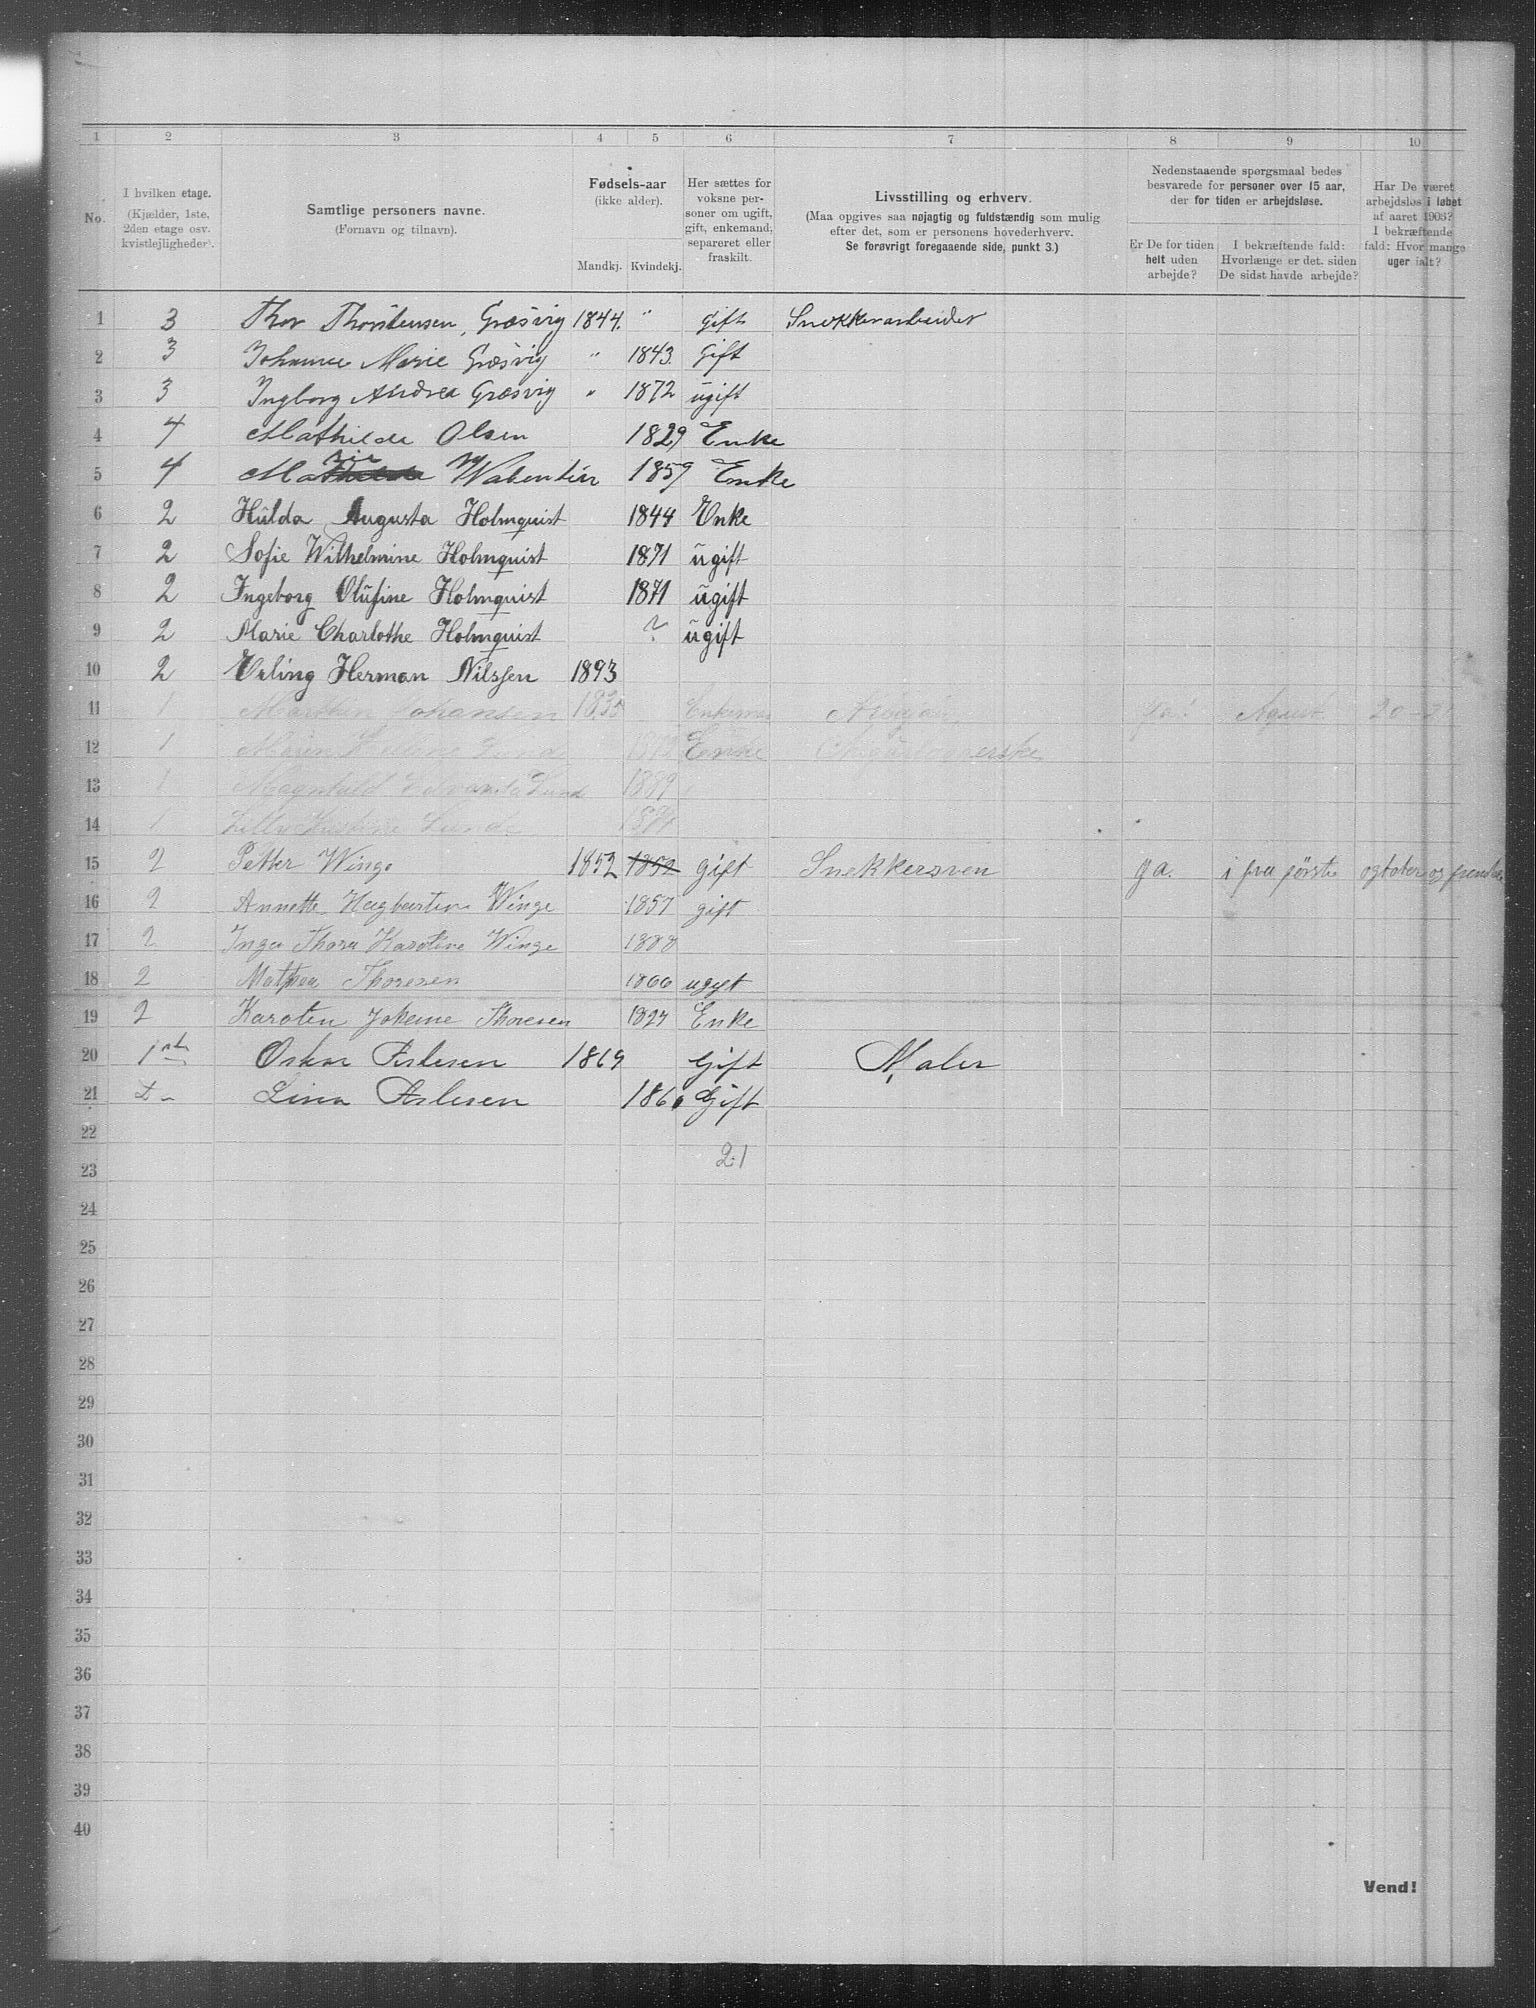 1 2 3 4 5 6 7 8 9 10
No.
I hvilken etage.
(Kjælder, 1ste,
2den etage osv.
kvistlejligheder).
Samtlige personers navne.
(Fornavn og tilnavn).
Fødsels-aar
(ikke alder).
Mandkj. Kvindekj.
Her sættes for
voksne per-
soner om ugift,
gift, enkemand,
separeret eller
fraskilt.
Livsstilling og erhverv.
(Maa opgives saa nøjagtig og fuldstændig som mulig
efter det, som er personens hovederhverv.
Se forøvrigt foregaaende side, punkt 3.)
Nedenstaaende spørgsmaal bedes
besvarede for personer over 15 aar,
der for tiden er arbejdsløse.
Er De for tiden
helt uden
arbejde?
I bekræftende fald:
Hvorlænge er det. siden
De sidst havde arbejde?
Har De været
arbejdsløs i løbet
af aaret 1903?
I bekræftende
fald: Hvor mange
uger ialt?
1 3 Thor Thorstensen, Græsvig 1844. " Gift Snekkerarbeider
2 3 Johanne Marie Græsvig " 1843. Gift
3 3 Ingborg Andrea Græsvig " 1872 ugift
4 4 Mathilde Olsen 1829 Enke
5 4 1859 Enke
6 2 Hulda Augusta Holmquist 1844 Enke
7 2 Sofie Wilhelmine Holmquist 1871 ugift
8 2 Ingeborg Olufine Holmquist 1871 ugift
9 2 Marie Charlothe Holmquist ? ugift
10 2 Erling Herman Nilssen 1893
11 1 Johansen Enkemand Ja! Agust 20
12 1 Lund Enke
13 1 Lund 1889
14 1 Lund
15 2 Petter Winge 1852 1852 gift Snekkersven ja. i fra første
16 2 Annette Winge 1857 gift
17 2 Inga Thora Karoline Winge 1888
18 2 Mathea Thoresen 1866 ugift
19 2 Thoresen Enke
20 1 Oskar Aslesen 1869 Gift Maler
21 Lina Aslesen Gift
22
21
23
24
25
26
27
28
29
30
31
32
33
34
35
36
37
38
39
40
Vend!